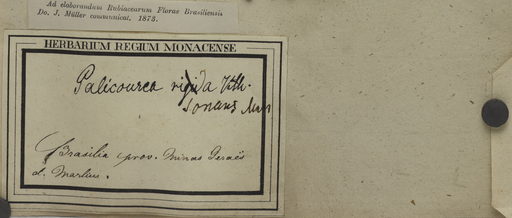 Ad elaborandum Rubiacearum Florae Brasiliensis
Do. J. Müller communicat. 1873.
HERBARIUM REGIUM MONACENSE
Palicourea rigida
sonans
Brasilia prov. Minas Geraës
d. Martius.